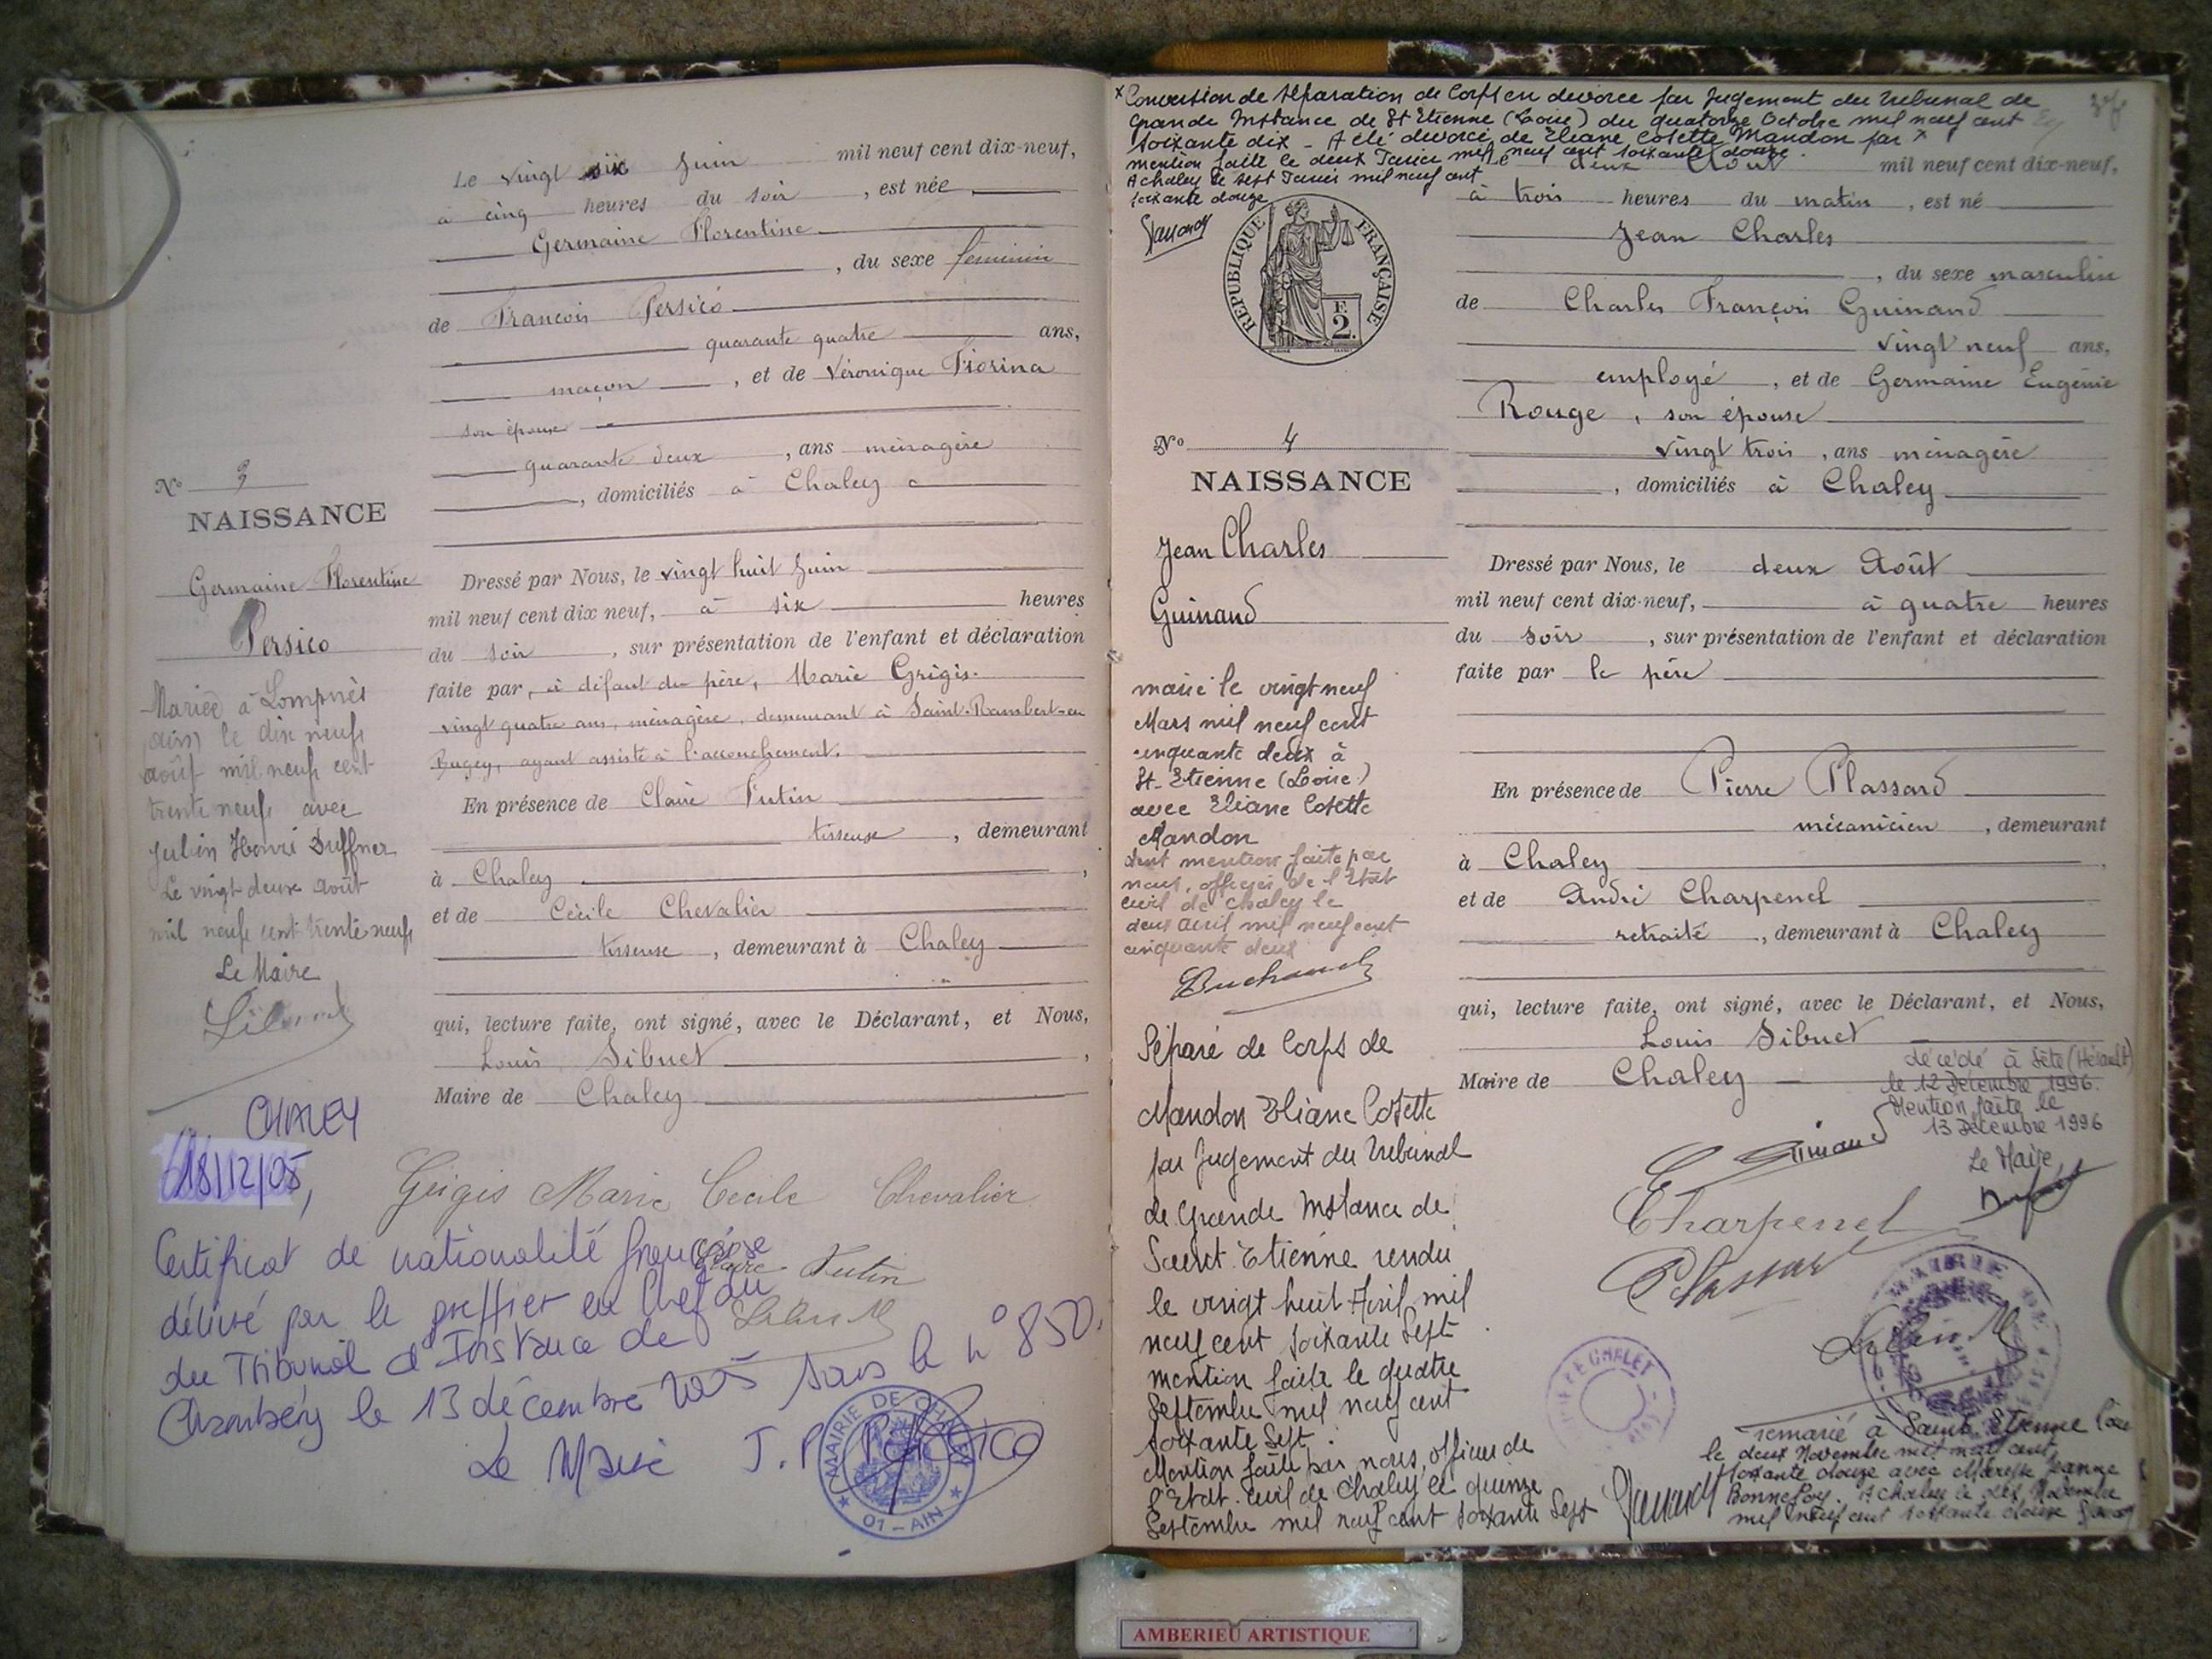 Le vingt six Juin mil neuf cent dix-neuf,
à cinq heures du soir, est née
Germaine Florentine
, du sexe féminin
de François Persico
quarante quatre ans,
maçon, et de Véronique Fiorina
son épouse
quarante deux, ans ménagère
, domiciliés à Chaley
Nº 3
NAISSANCE
Germaine Florentine
Persico
Mariée à Lompnès
(Ain) le dix neuf
août mil neuf cent
trente neuf avec
Julien Henri Duffner
Le vingt deux août
mil neuf cent trente neuf
Le Maire
Dressé par Nous, le vingt huit Juin
mil neuf cent dix neuf, à six heures
du soir, sur présentation de l'enfant et déclaration
faite par, à défaut du père, Marie Grigis.
vingt quatre ans, ménagère, demeurant à Saint-Rambert-en
Bugey, ayant assisté à l'accouchement.
En présence de Claire Tutin
tisseuse, demeurant
à Chaley,
et de Cécile Chevalier
tisseuse, demeurant à Chaley
qui, lecture faite, ont signé, avec le Déclarant, et Nous,
Louis Sibuet,
Maire de Chaley
Grigis Marie Cécile Chevalier
Claire Tutin
CHALEY
18/12/05,
Certificat de nationalité française
délivré par le greffier en Chef du
du Tribunal d'Instance de
Chambéry le 13 décembre 2005 sous le nº 850.
Le Maire J. P.
MAIRIE DE CHALEY
01 - AIN
x Conversion de séparation de Corps en divorce par Jugement du Tribunal de
Grande Instance de St Etienne (Loire) du quatorze Octobre mil neuf cent
soixante dix - A été divorcé de Eliane Cosette Mandon par x
mention faite le deux Janvier mil neuf cent soixante douze.
A chaley le sept Janvier mil neuf cent
soixante douze
Le deux Août mil neuf cent dix-neuf,
à trois heures du matin, est né
Jean Charles
, du sexe masculin
de Charles François Guinand
vingt neuf ans,
employé, et de Germaine Eugénie
Rouge, son épouse
vingt trois, ans ménagère
, domiciliés à Chaley
REPUBLIQUE FRANÇAISE
F.
2.
Nº 4
NAISSANCE
Jean Charles
Guinand
marié le vingt neuf
Mars mil neuf cent
cinquante deux à
St-Etienne (Loire)
avec Eliane Cosette
Mandon
dont mention faite par
nous, officier de l'Etat
civil de chaley le
deux avril mil neuf cent
cinquante deux
Séparé de Corps de
Mandon Eliane Cosette
par Jugement du Tribunal
de Grande Instance de
Saint-Etienne rendu
le vingt huit Avril mil
neuf cent soixante sept.
mention faite le quatre
Septembre mil neuf cent
soixante sept.
Mention faite par nous, officier de
l'Etat-civil de Chaley le quinze
Septembre mil neuf cent soixante sept
Dressé par Nous, le deux Août
mil neuf cent dix-neuf, à quatre heures
du soir, sur présentation de l'enfant et déclaration
faite par le père
En présence de Pierre Plassard
mécanicien, demeurant
à Chaley,
et de André Charpenel
retraité, demeurant à Chaley
qui, lecture faite, ont signé, avec le Déclarant, et Nous,
Louis Sibuet
Maire de Chaley
décédé à Sète (Hérault)
le 12 Décembre 1996.
Mention faite le
13 Décembre 1996
Le Maire,
Guinand
Charpenel
Plassard
remarié à Saint Etienne Loire
le deux Novembre mil neuf cent
soixante douze avec Jeanne
Bonnefoy. A chaley le dix Novembre
mil neuf cent soixante douze
AMBERIEU ARTISTIQUE